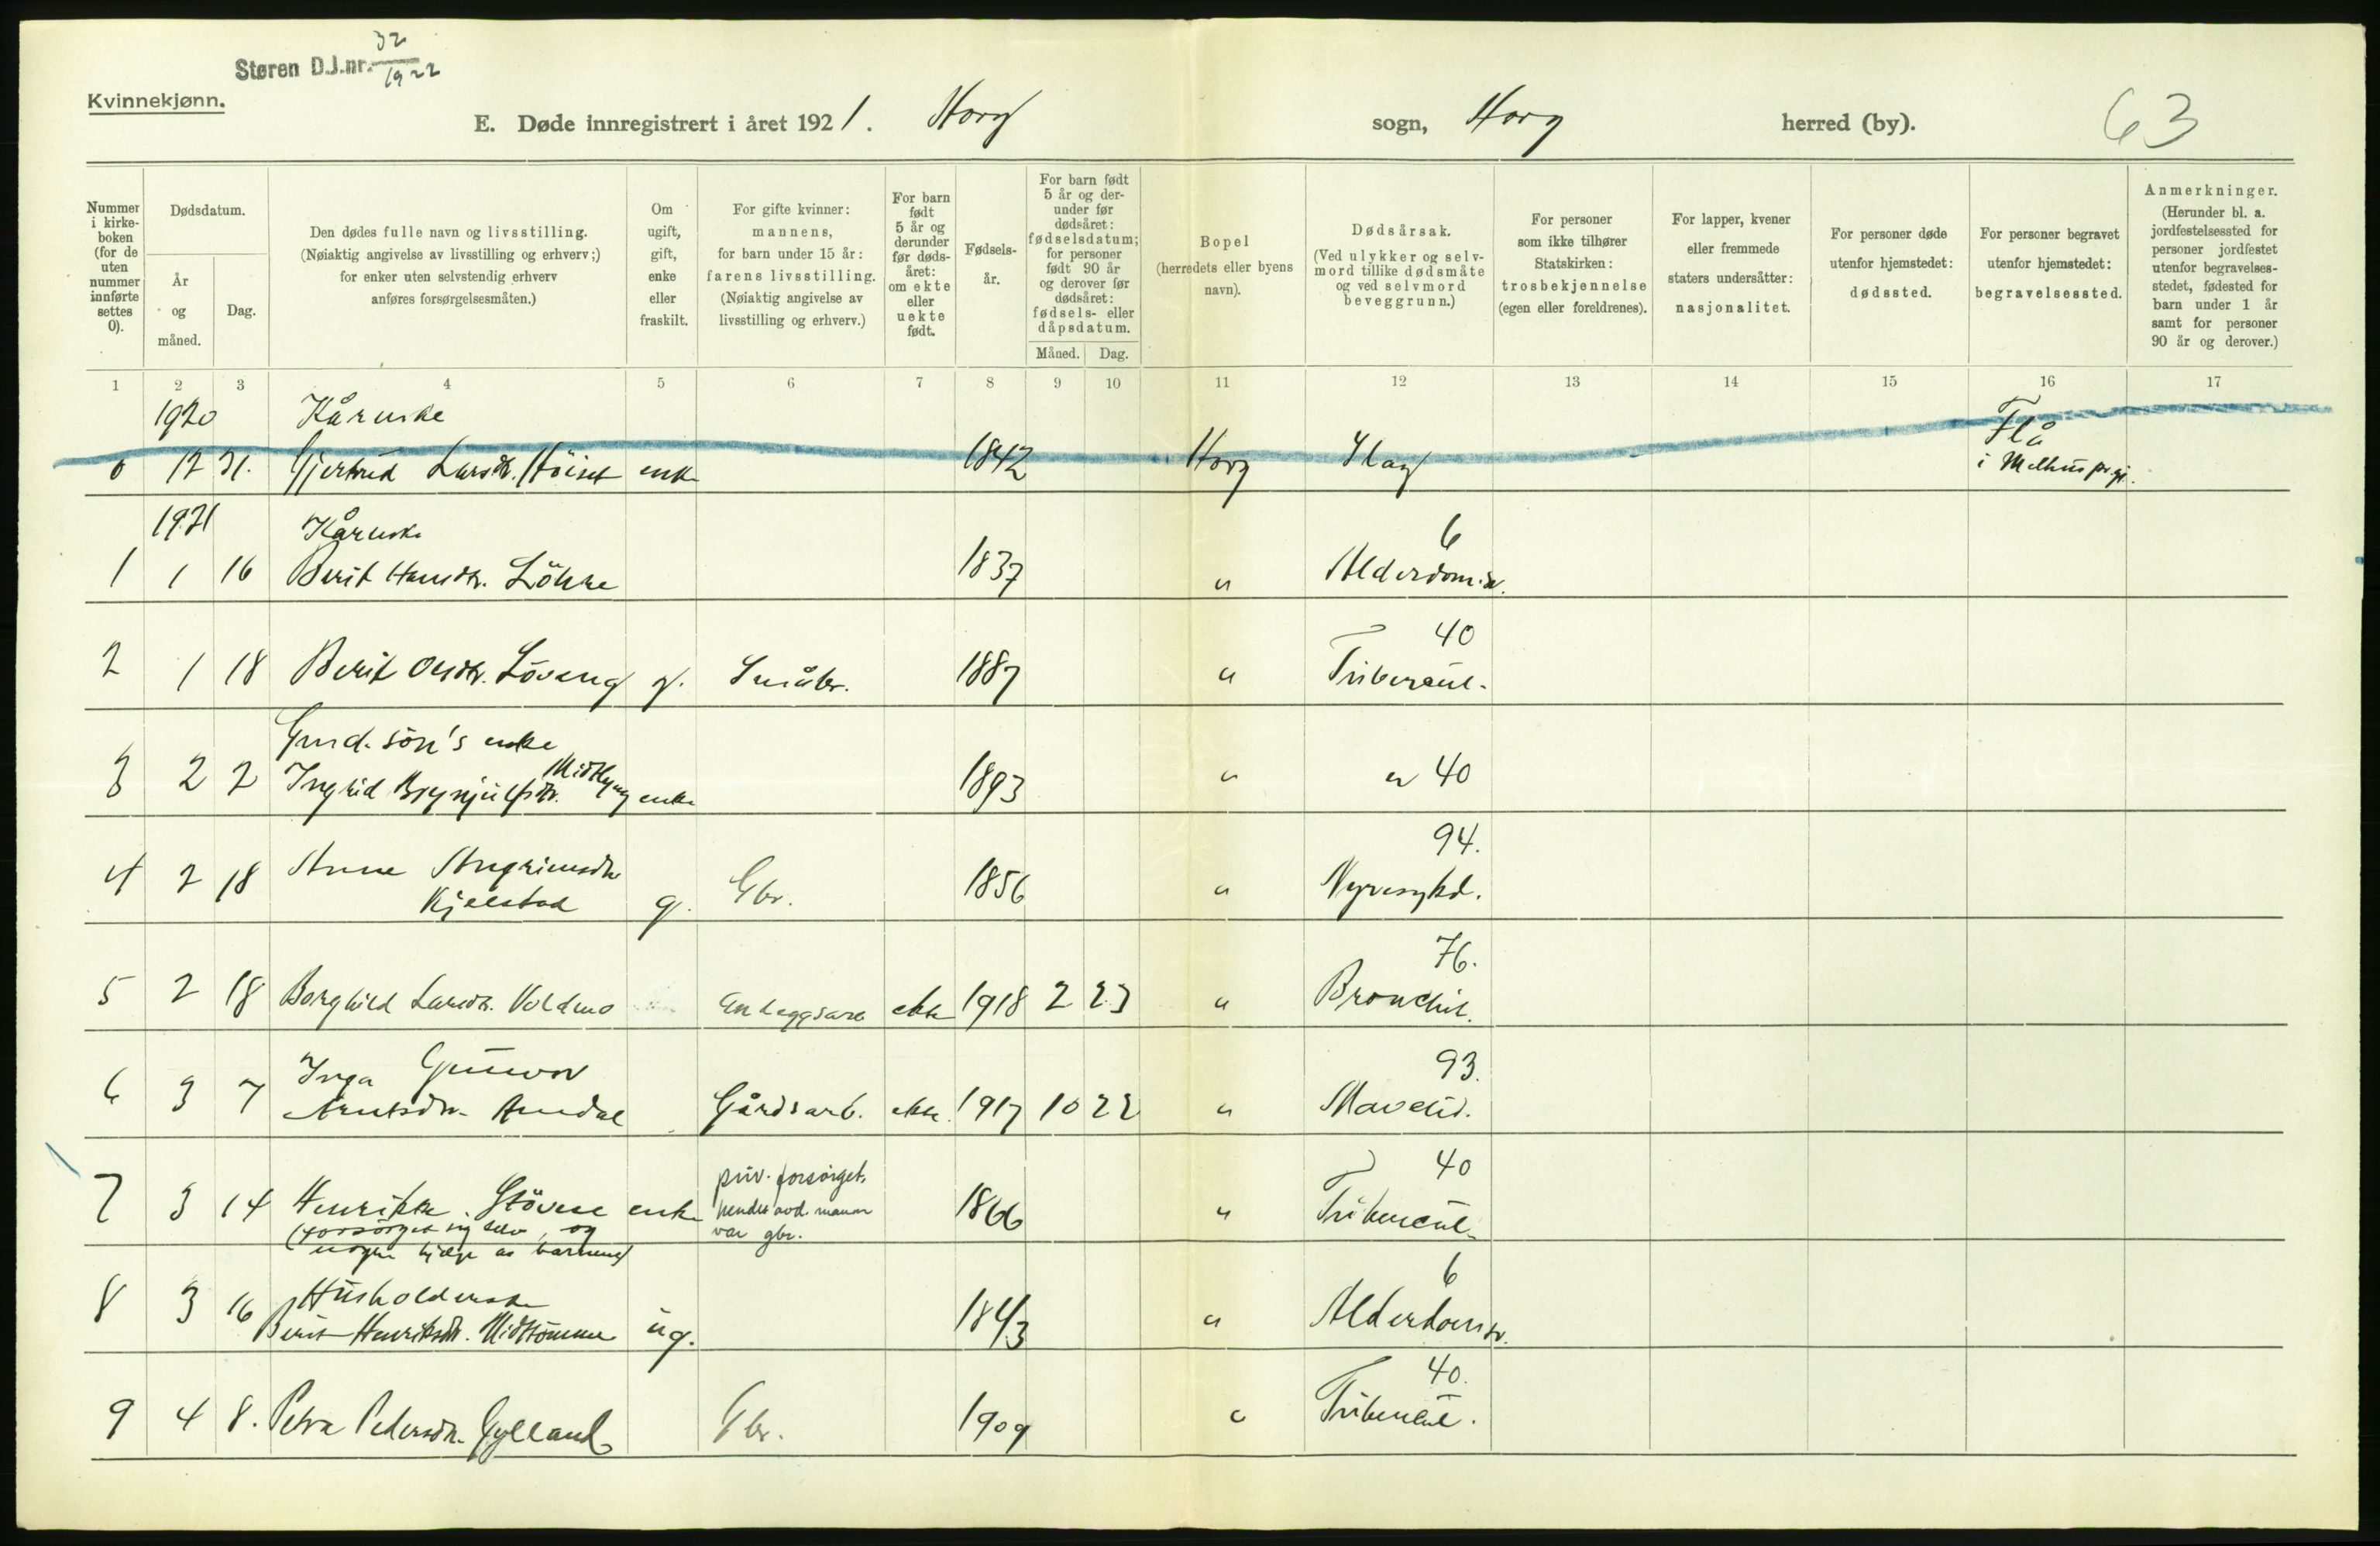 Støren D.J.nr. 32/1922
Kvinnekjønn.
E. Døde innregistrert i året 1921. Horg sogn, Horg herred (by). 63
Nummer i kirke-boken (for de uten nummer innførte settes 0).
Dødsdatum.
År og måned.
Dag.
Den dødes fulle navn og livsstilling.
(Nøiaktig angivelse av livsstilling og erhverv;)
for enker uten selvstendig erhverv
anføres forsørgelsesmåten.)
Om ugift, gift, enke eller fraskilt.
For gifte kvinner:
mannens,
for barn under 15 år:
farens livsstilling.
(Nøiaktig angivelse av
livsstilling og erhverv.)
For barn født 5 år og derunder før døds-året: om ekte eller uekte født.
Fødsels-år.
For barn født 5 år og der-under før dødsåret: fødselsdatum; for personer født 90 år og derover før dødsåret: fødsels- eller dåpsdatum.
Måned. Dag.
Bopel
(herredets eller byens
navn).
Dødsårsak.
(Ved ulykker og selv-
mord tillike dødsmåte
og ved selvmord
beveggrunn.)
For personer
som ikke tilhører
Statskirken:
trosbekjennelse
(egen eller foreldrenes).
For lapper, kvener
eller fremmede
staters undersåtter:
nasjonalitet.
For personer døde
utenfor hjemstedet:
dødssted.
For personer begravet
utenfor hjemstedet:
begravelsessted.
Anmerkninger.
(Herunder bl. a.
jordfestelsessted for
personer jordfestet
utenfor begravelses-
stedet, fødested for
barn under 1 år
samt for personer
90 år og derover.)
1 2 3 4 5 6 7 8 9 10 11 12 13 14 15 16 17
1920 Kårenke Flå
0 12 31. Gjertrud Larsdtr. Høiset enke 1842 Horg Slag i Melhus prgj.
1921 Kårenke 6
1 1 16 Berit Hansdtr. Løhre 1837 " Alderdomsv.
40
2 1 18 Berit Olsdtr. Løveng g. Småbr. 1887 " Tubercul.
Grud. søn's enke
3 2 2 Ingrid Brynjulfsdtr. enke 1893 " " 40
94.
4 2 18 Anne Arngrimsdtr
Kjelstad g. Gbr. 1856 " Nyresykd.
76.
5 2 18 Borghild Larsdtr. Voldmo Anleggsarb ekte 1918 2 23 " Bronchit.
Inga Gunvor 93.
6 3 7 Arntsdtr. Amdal Gårdsarb. ekte. 1917 10 22 " Mavelid.
priv. forsørget, 40
7 3 14 Henrikke Støvne enke hendes avd. mann 1866 " Tubercul.
(forsørget sig selv, og var gbr.
nogen hjælp av barnene)
Husholderske 6
8 3 16 Berit Henriksdtr. Midttømme ug. 1843 " Alderdomsv.
40.
9 4 8. Petra Pedersdtr. Gylland Gbr. 1909 " Tubercul.